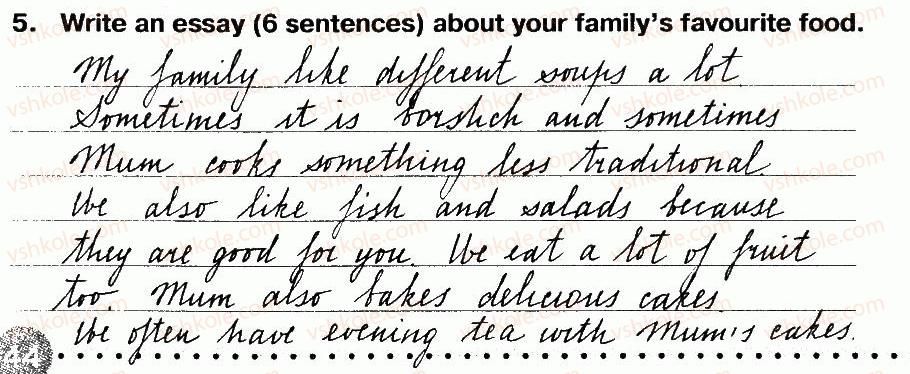 5. Write an essay (6 sentences) about your family's favourite food.
My family like different soups a lot
Sometimes it is borshch and sometimes
Mum cooks something less traditional.
We also like fish and salads because
they are good for you. We eat a lot of fruit
too. Mum also bakes delicious cakes.
We often have evening tea with Mum's cakes.
44